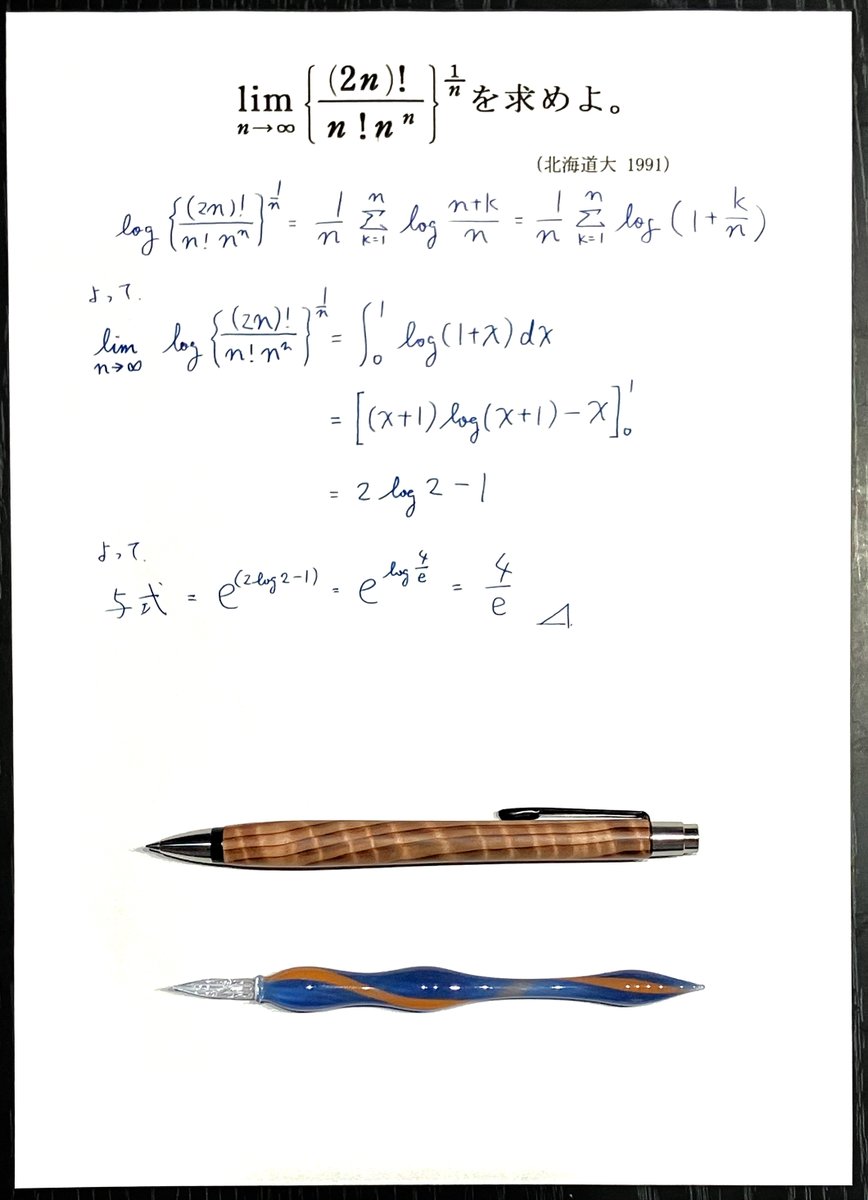 lim_{n→∞} { (2n)! / (n! n^n) }^{1/n} を求めよ。
(北海道大 1991)
log { (2n)! / (n! n^n) }^{1/n} = 1/n Σ_{k=1}^{n} log (n+k)/n = 1/n Σ_{k=1}^{n} log (1 + k/n)
よって.
lim_{n→∞} log { (2n)! / (n! n^n) }^{1/n} = ∫_0^1 log(1+x)dx
= [(x+1)log(x+1) − x]_0^1
= 2 log 2 − 1
よって.
与式 = e^{(2log2−1)} = e^{log 4/e} = 4/e